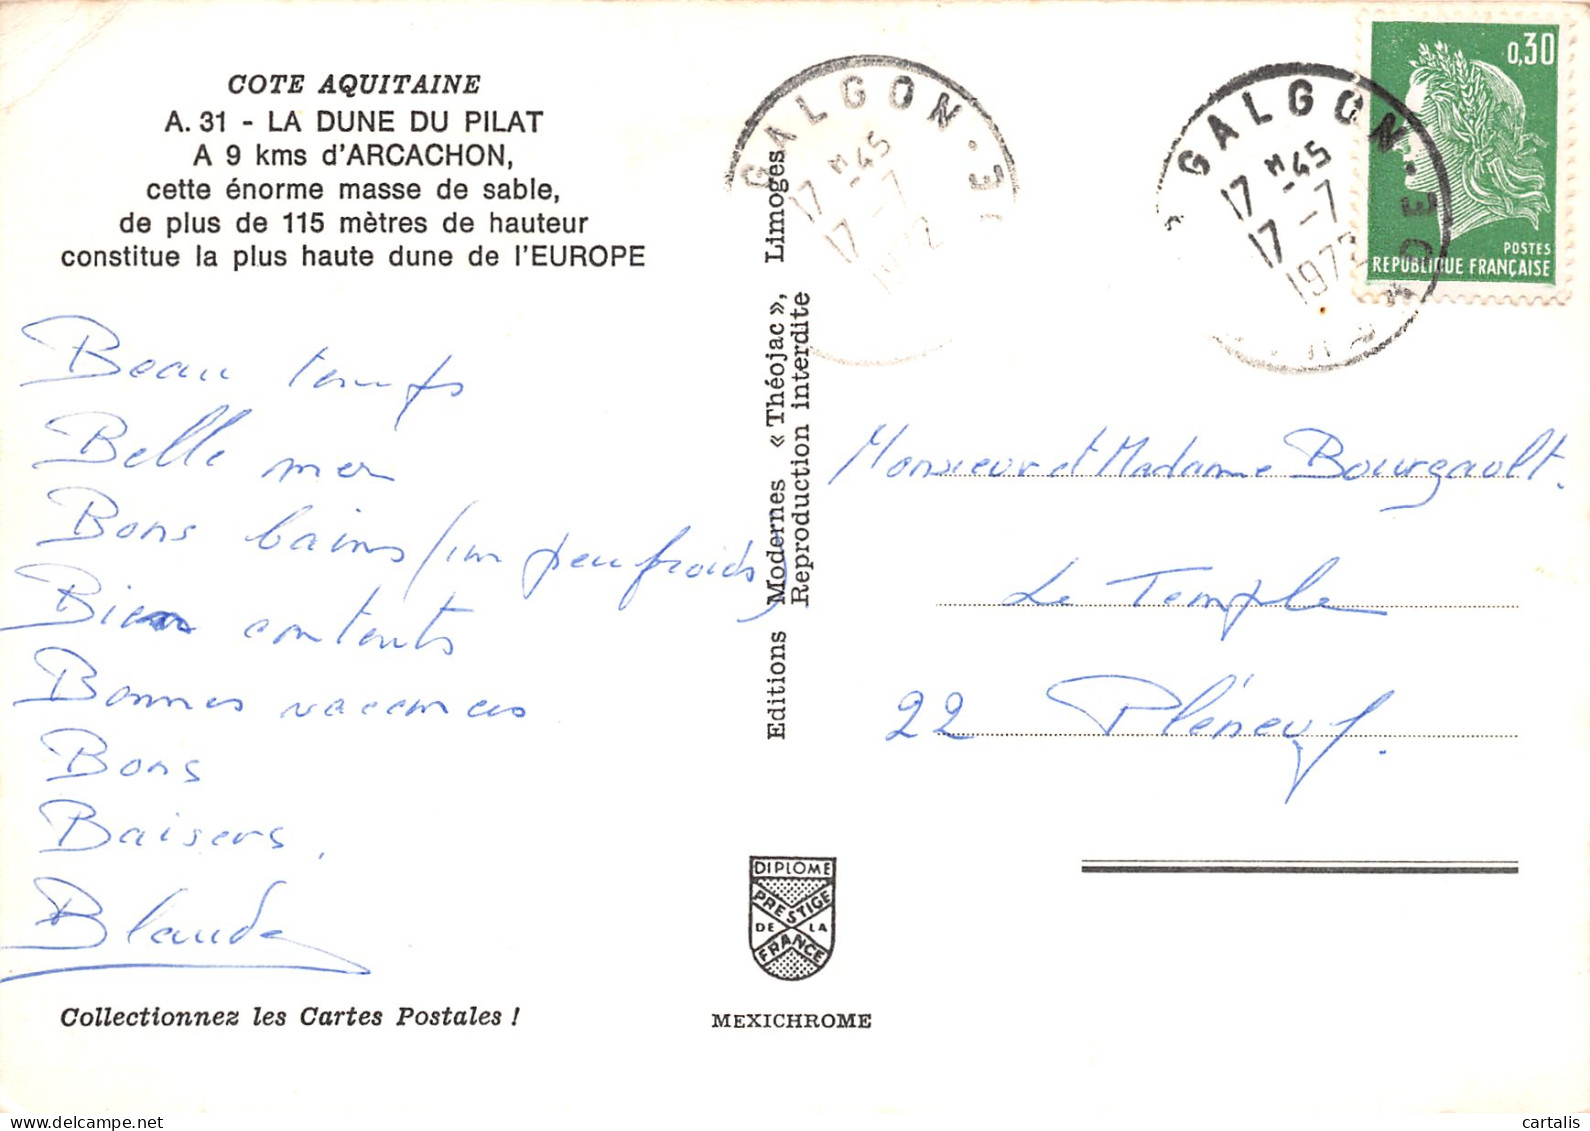 COTE AQUITAINE
A. 31 - LA DUNE DU PILAT
A 9 kms d'ARCACHON,
cette énorme masse de sable,
de plus de 115 mètres de hauteur
constitue la plus haute dune de l'EUROPE
Beau temps
Belle mer
Bons bains (un peu froids)
Bien contents
Bonnes vacances
Bons
Baisers.
Collectionnez les Cartes Postales !
Editions Modernes « Théojac », Limoges
Reproduction interdite
DIPLOME
PRESTIGE
DE LA
FRANCE
MEXICHROME
GALGON
17 H 45
17 -7
GALGON
17 H 45
17 -7
1972
0,30
POSTES
REPUBLIQUE FRANÇAISE
Monsieur et Madame Bourgault.
Le Temple
22 Pléneuf.
cartalis